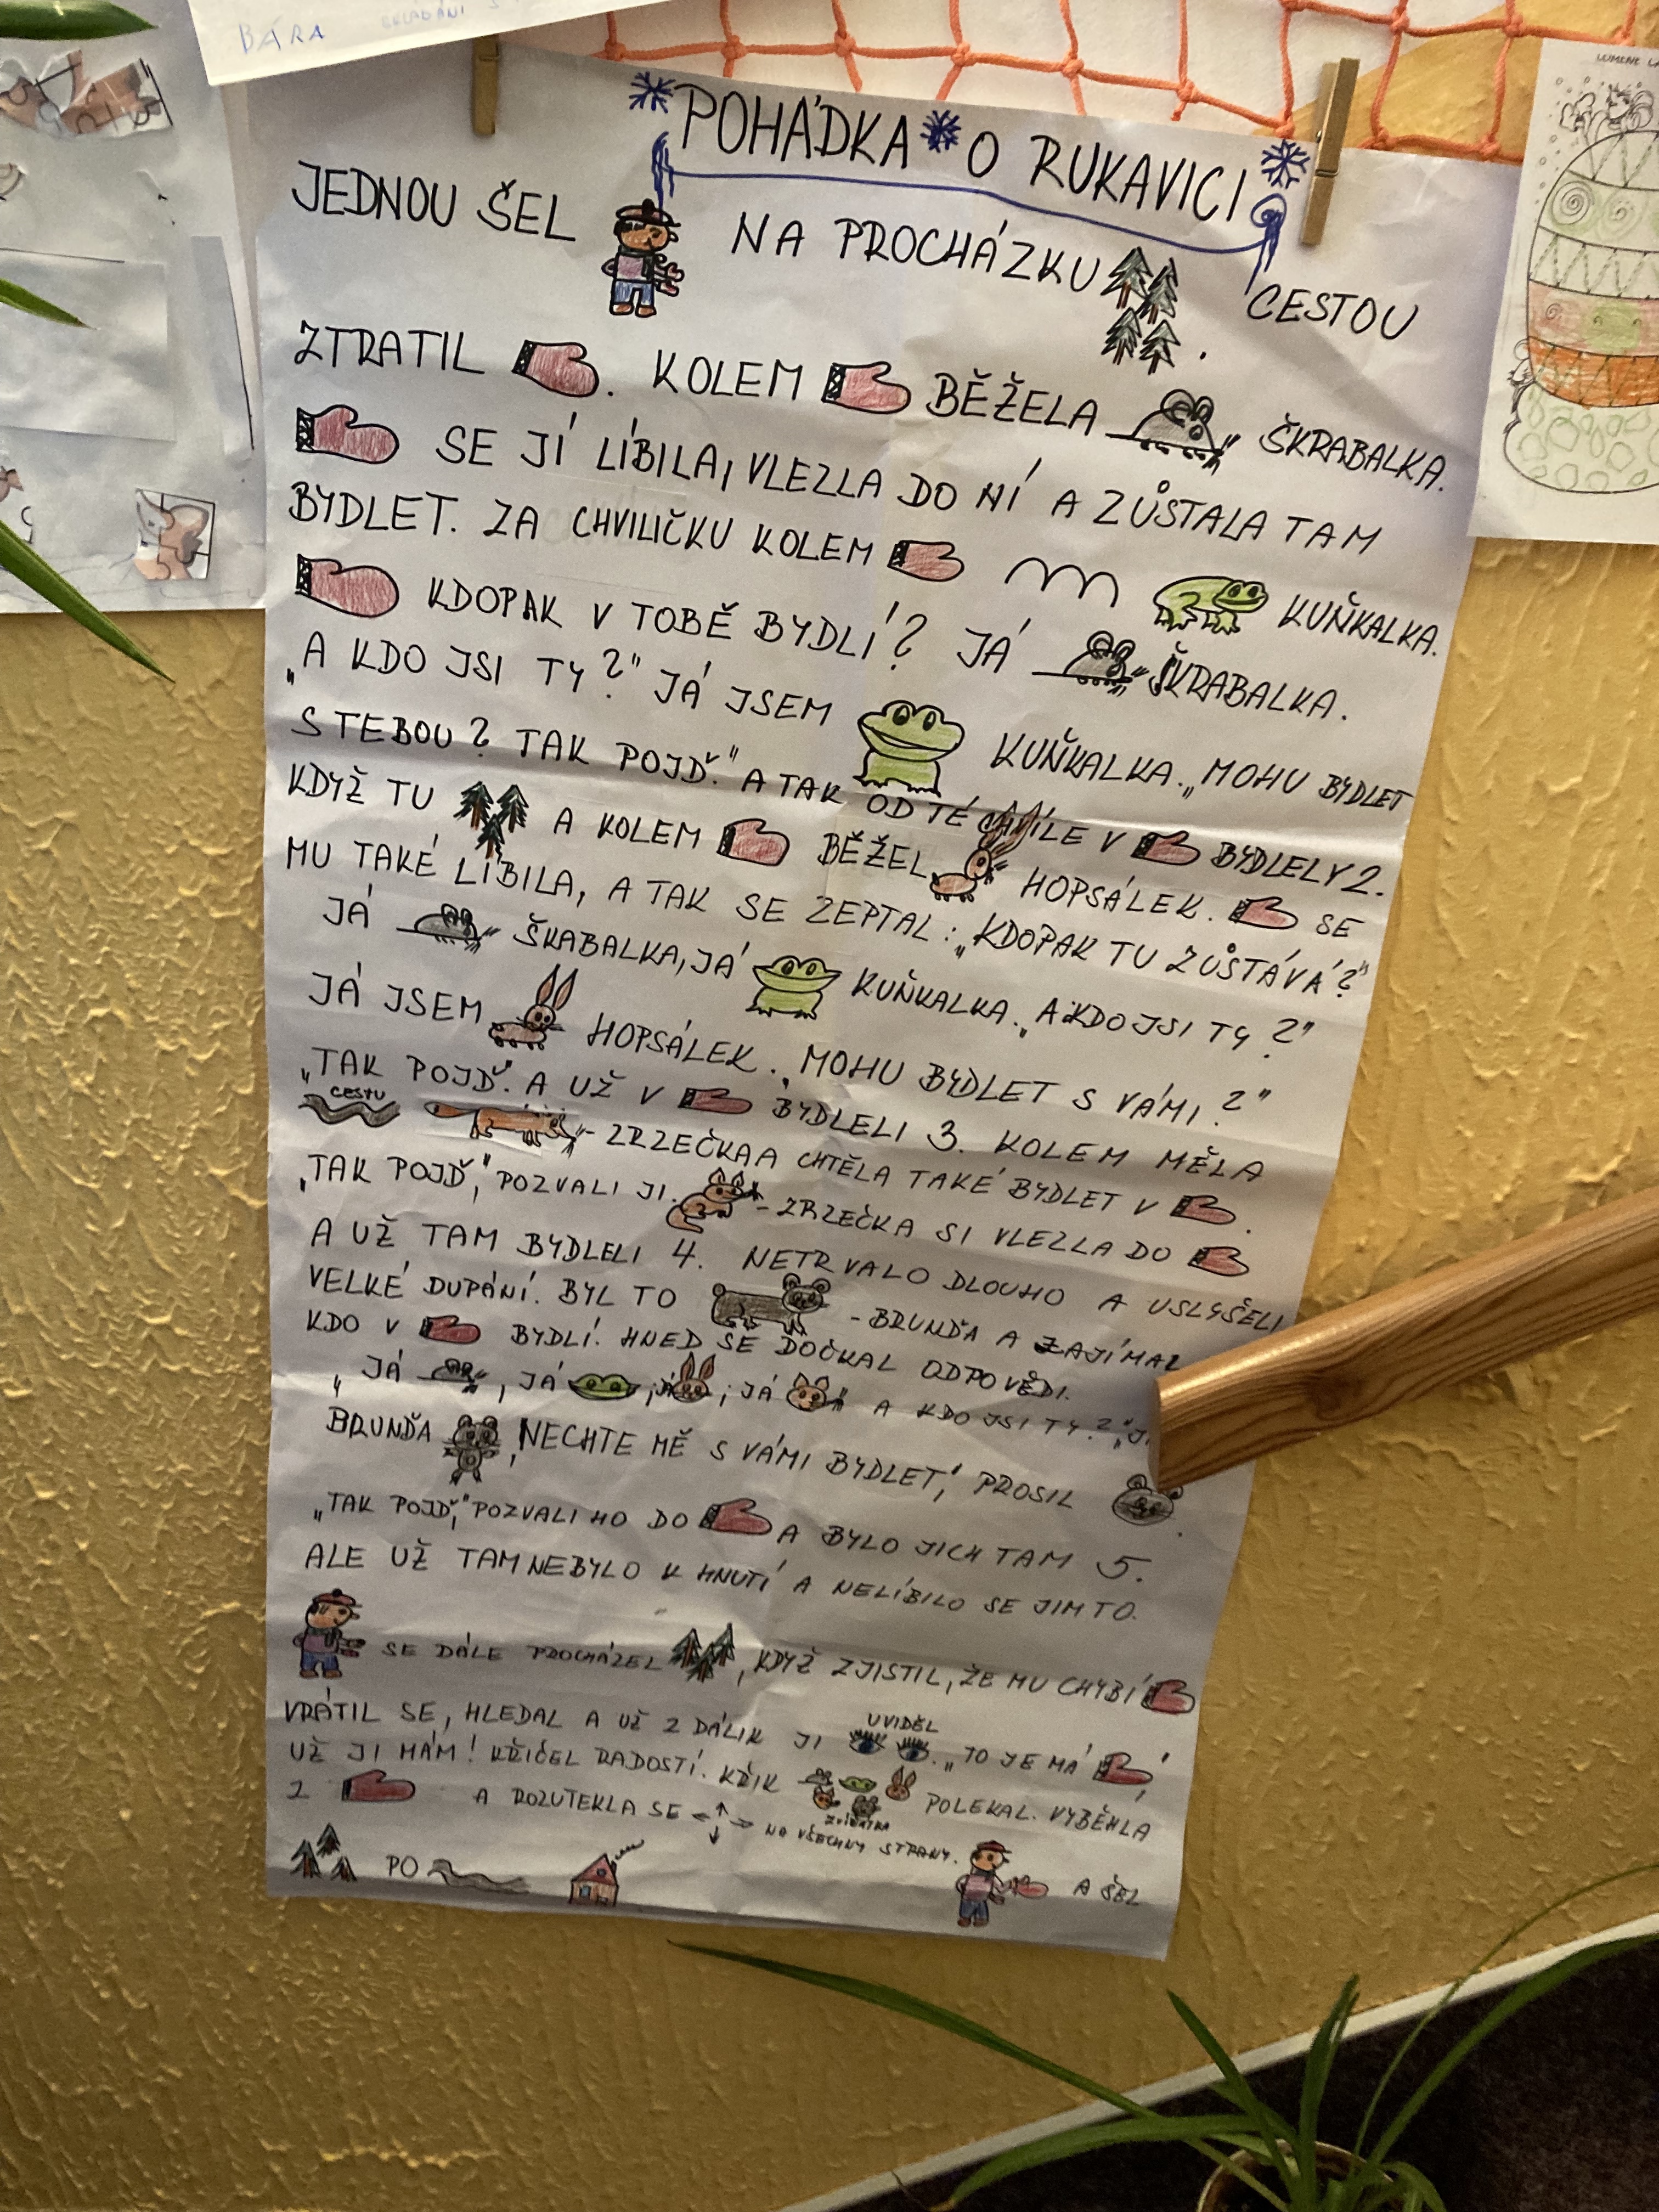 BÁRA
POHÁDKA O RUKAVICI
JEDNOU ŠEL NA PROCHÁZKU CESTOU
ZTRATIL . KOLEM BĚŽELA ŠKRABALKA.
SE JÍ LÍBILA, VLEZLA DO NÍ A ZŮSTALA TAM
BYDLET. ZA CHVILIČKU KOLEM KUŇKALKA.
KDOPAK V TOBĚ BYDLÍ? JÁ ŠKRABALKA.
„A KDO JSI TY?" JÁ JSEM KUŇKALKA. „MOHU BYDLET
S TEBOU? TAK POJĎ." A TAK OD TÉ CHVÍLE V BYDLELY 2.
KDYŽ TU A KOLEM BĚŽEL HOPSÁLEK. SE
MU TAKÉ LÍBILA, A TAK SE ZEPTAL: „KDOPAK TU ZŮSTÁVÁ?"
JÁ ŠKABALKA, JÁ KUŇKALKA. „A KDO JSI TY?"
JÁ JSEM HOPSÁLEK. „MOHU BYDLET S VÁMI?"
„TAK POJĎ". A UŽ V BYDLELI 3. KOLEM MĚLA
CESTU - ZRZEČKA A CHTĚLA TAKÉ BYDLET V .
„TAK POJĎ," POZVALI JI. - ZRZEČKA SI VLEZLA DO
A UŽ TAM BYDLELI 4. NETRVALO DLOUHO A USLYŠELI
VELKÉ DUPÁNÍ. BYL TO - BRUNĎA A ZAJÍMAL
KDO V BYDLÍ. HNED SE DOČKAL ODPOVĚDI.
„JÁ , JÁ , JÁ , JÁ A KDO JSI TY?"
BRUNĎA , NECHTE MĚ S VÁMI BYDLET," PROSIL .
„TAK POJĎ," POZVALI HO DO A BYLO JICH TAM 5.
ALE UŽ TAM NEBYLO K HNUTÍ A NELÍBILO SE JIM TO.
SE DÁLE PROCHÁZEL , KDYŽ ZJISTIL, ŽE MU CHYBÍ
VRÁTIL SE, HLEDAL A UŽ Z DÁLIK JI UVIDĚL . „TO JE MÁ ,
UŽ JI MÁM! KŘIČEL RADOSTÍ. KŘIK ZVÍŘATKA POLEKAL. VYBĚHLA
Z A ROZUTEKLA SE NA VŠECHNY STRANY. A ŠEL
PO